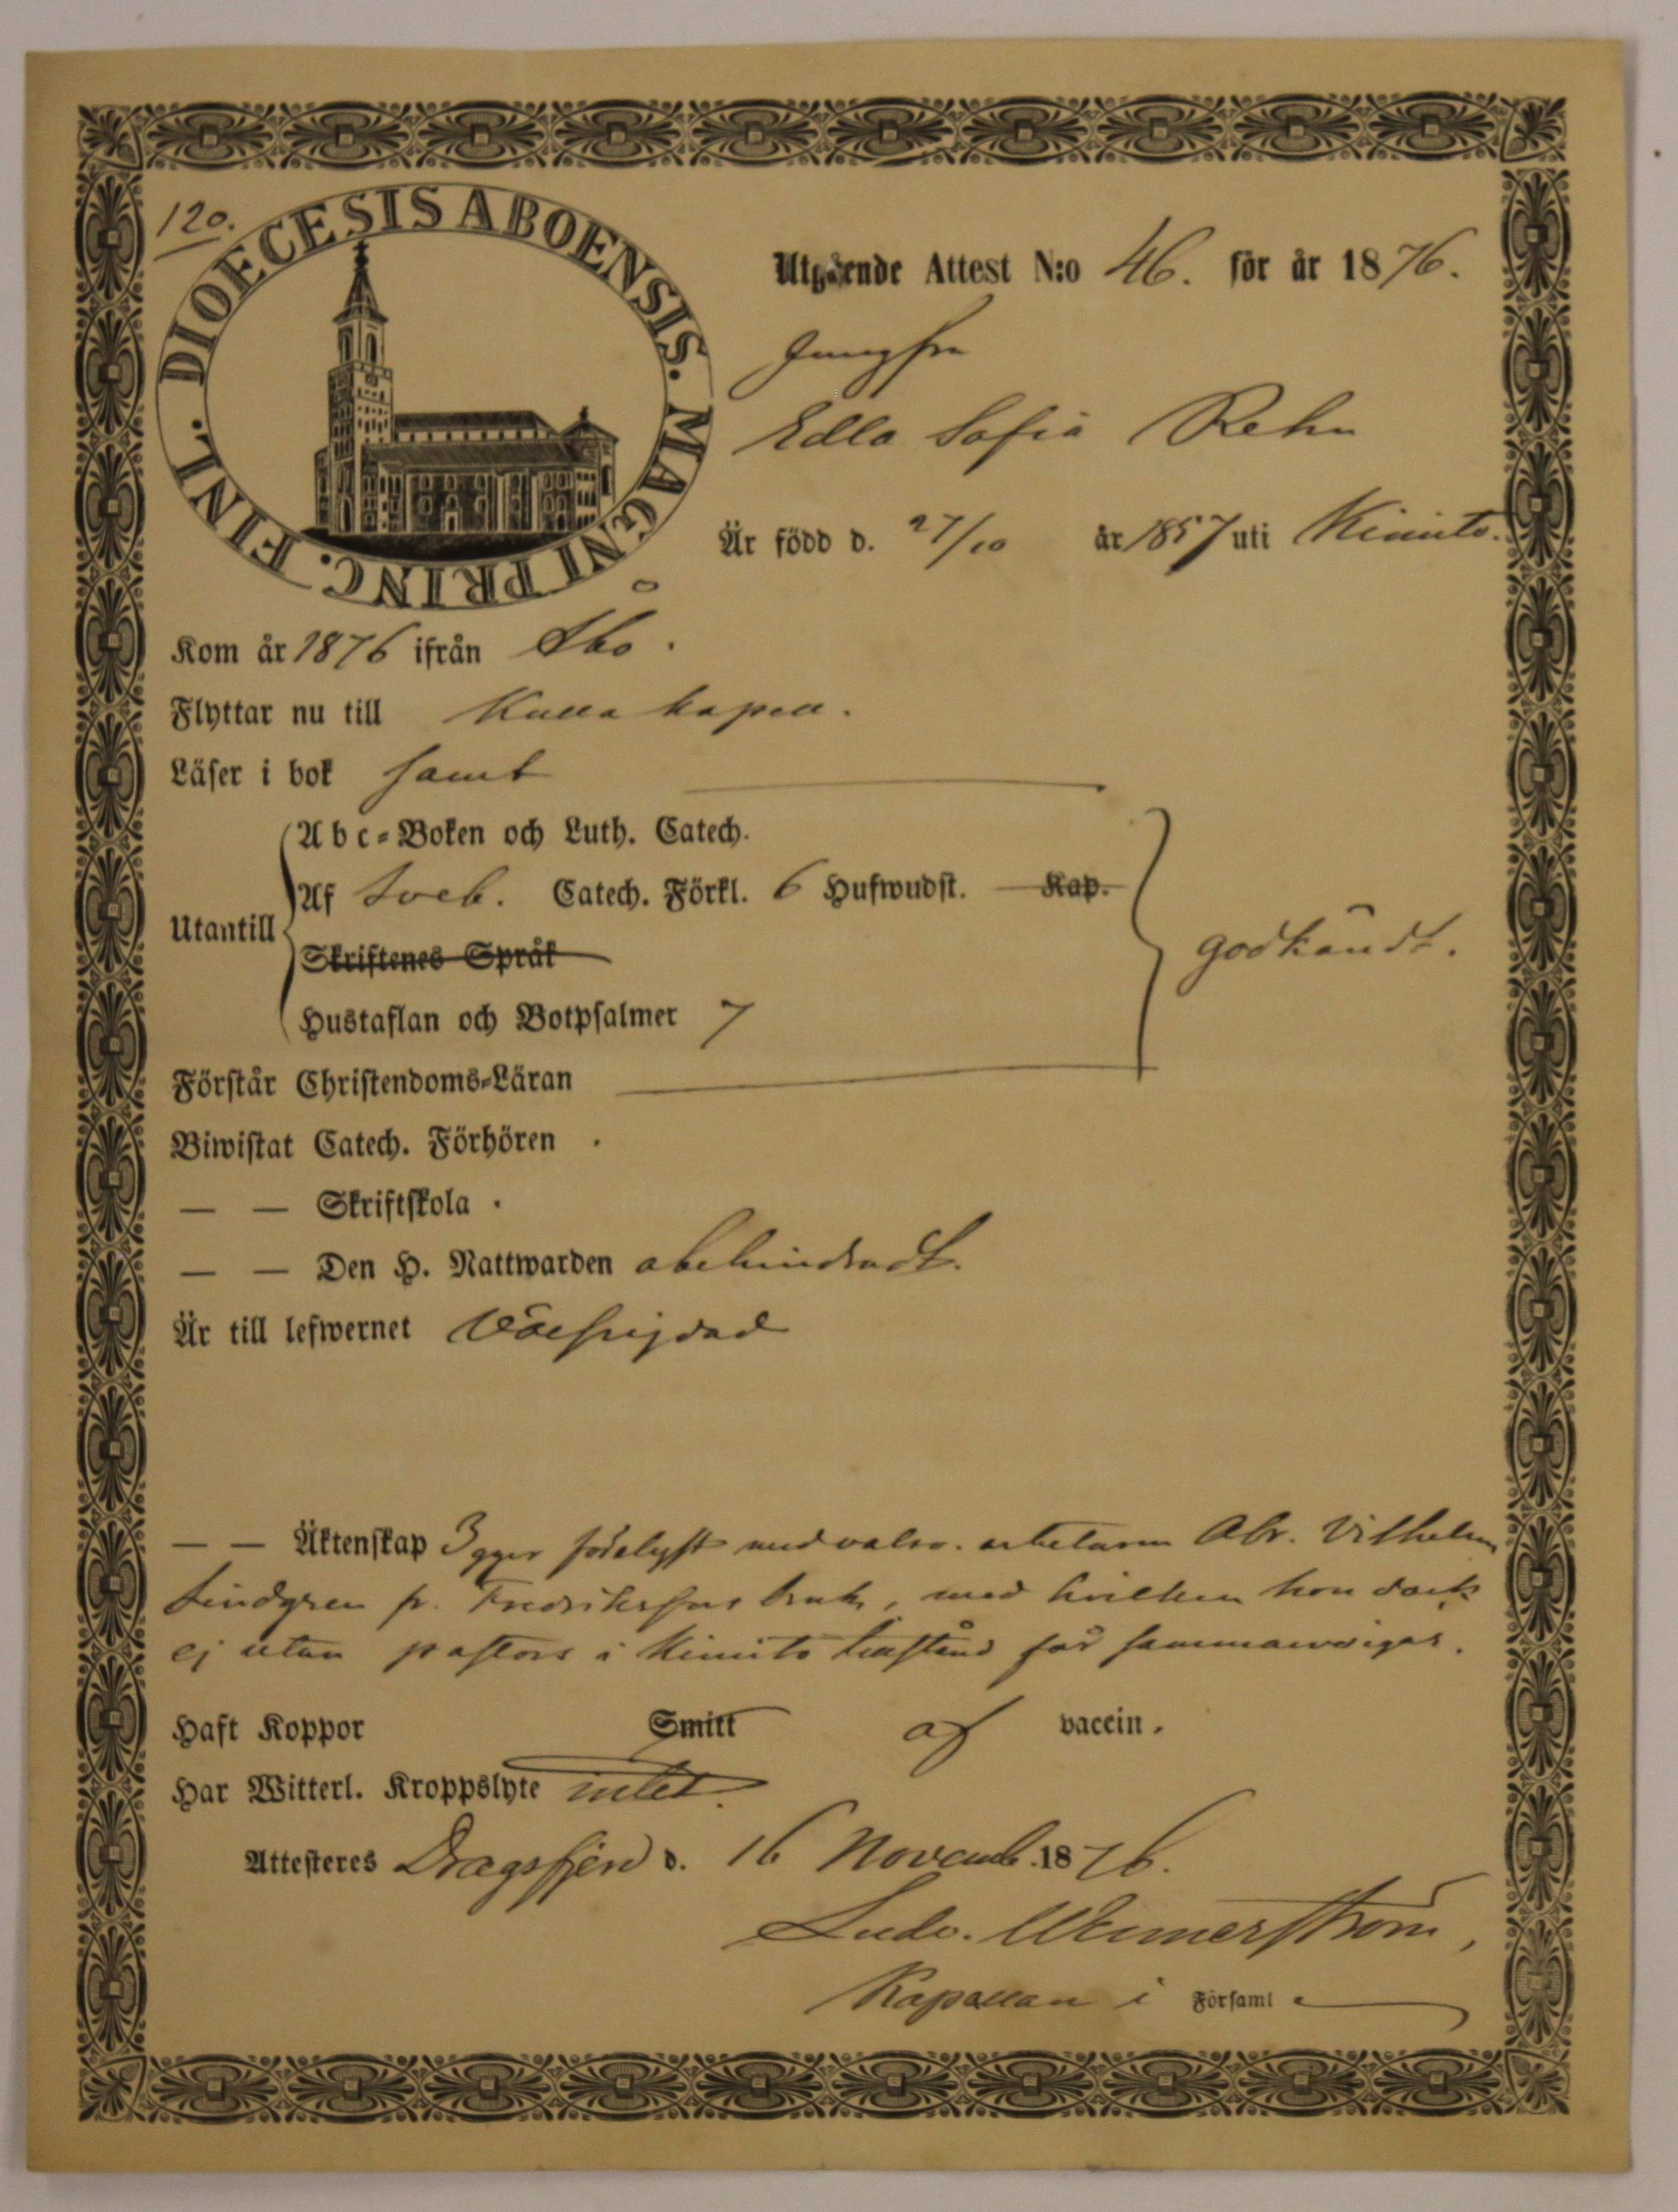 120.
DIOECESIS ABOENSIS. MAGNI PRINC. FINL.
Utgående Attest N:o 46. för år 1876.
Jungfru
Edla Sofia Rehn
Är född d. 27/10 år 1857 uti Kimito.
Kom år 1876 ifrån Åbo.
Flyttar nu till Kulla kapell.
Läser i bok samt
Abc-Boken och Luth. Catech.
Af Sveb. Catech. Förkl. 6 Hufwudst. Kap.
Utantill
godkändt.
Skriftenes Språk
Hustaflan och Botpsalmer 7
Förstår Christendoms-Läran
Biwistat Catech. Förhören .
— — Skriftskola .
— — Den H. Nattwarden obehindradt.
Är till lefwernet välfrejdad
— — Äktenskap 3 ggr förelyst med arbetaren Abr. Vilhelm
Lindgren fr. Fredriksfors bruk, med hvilken hon dock
ej utan pastors i Kimito får sammanvigas.
Haft Koppor Smitt af vaccin.
Har Witterl. Kroppslyte intet.
Attesteres Dragsfjerd d. 16 Novemb. 1876.
Ludv. Wennerström,
Kapellan i Församl